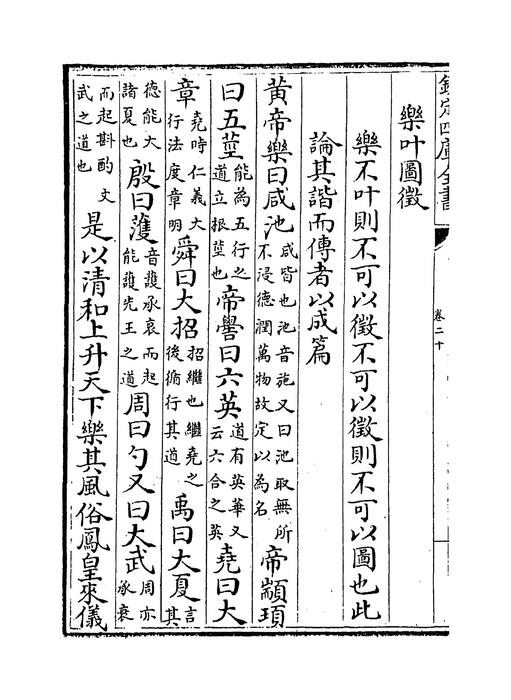 欽定四庫全書
卷二十
樂叶圖徵
樂不叶則不可以徵不可以徵則不可以圖也此
論其諧而傳者以成篇
黄帝樂曰咸池咸皆也池音施又曰池取無所不浸德潤萬物故定以為名帝顓頊
曰五莖能為五行之道立根莖也帝嚳曰六英道有英華又云六合之英堯曰大
章堯時仁義大行法度章明舜曰大招招繼也繼堯之後循行其道禹曰大夏言其
德能大諸夏也殷曰濩音護承衰而起能護先王之道周曰勺又曰大武周亦承衰
而起斟酌文武之道也是以清和上升天下樂其風俗鳳皇來儀